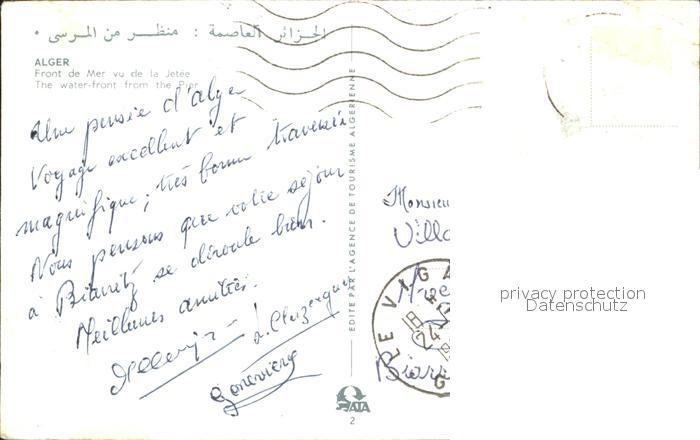 الجزائر العاصمة : منظر من المرسى •
ALGER
Front de Mer vu de la Jetée
The water-front from the Pier
Une pensée d'Alger
Voyage excellent et
magnifique, très bonne traversée
Nous pensons que votre séjour
à Biarritz se déroule bien.
Meilleures amitiés.
Geneviève
EDITE PAR L'AGENCE DE TOURISME ALGERIENNE
ATA
2
Monsieu
Villa
Biarri
LE VIGA
18
24
privacy protection
Datenschutz